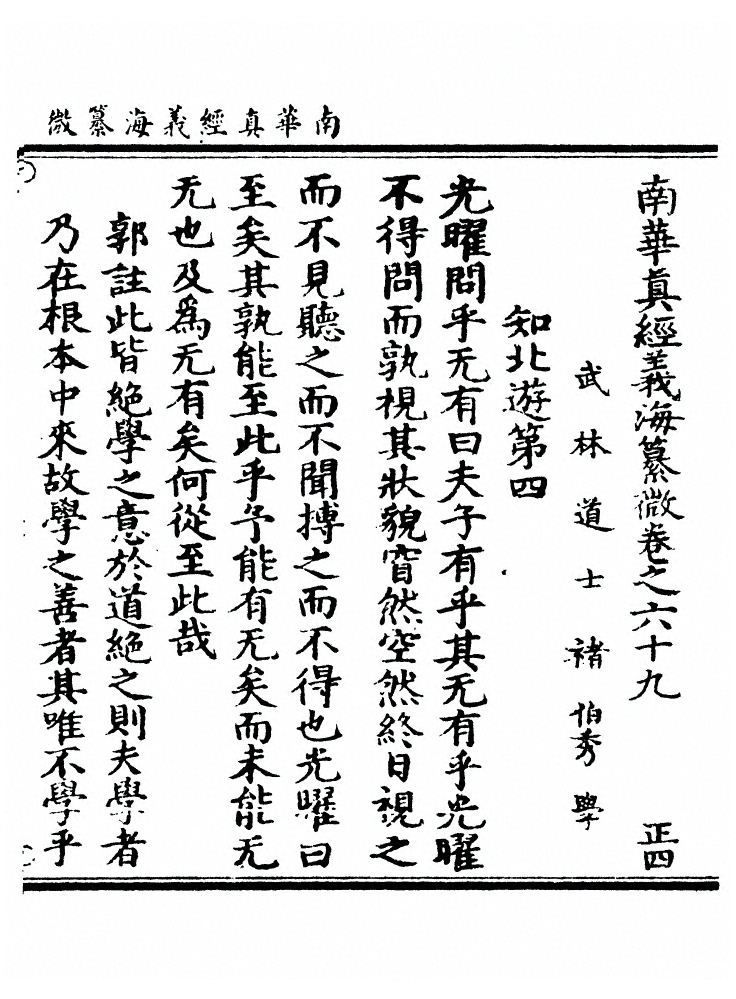 南華真經義海纂微
南華眞經義海纂微卷之六十九 正四
武林道士褚伯秀學
知北遊第四
光曜問乎无有曰夫子有乎其无有乎光曜
不得問而孰視其狀貌窅然空然終日視之
而不見聽之而不聞搏之而不得也光曜曰
至矣其孰能至此乎予能有无矣而未能无
无也及為无有矣何從至此哉
郭註此皆絕學之意於道絕之則夫學者
乃在根本中來故學之善者其唯不學乎